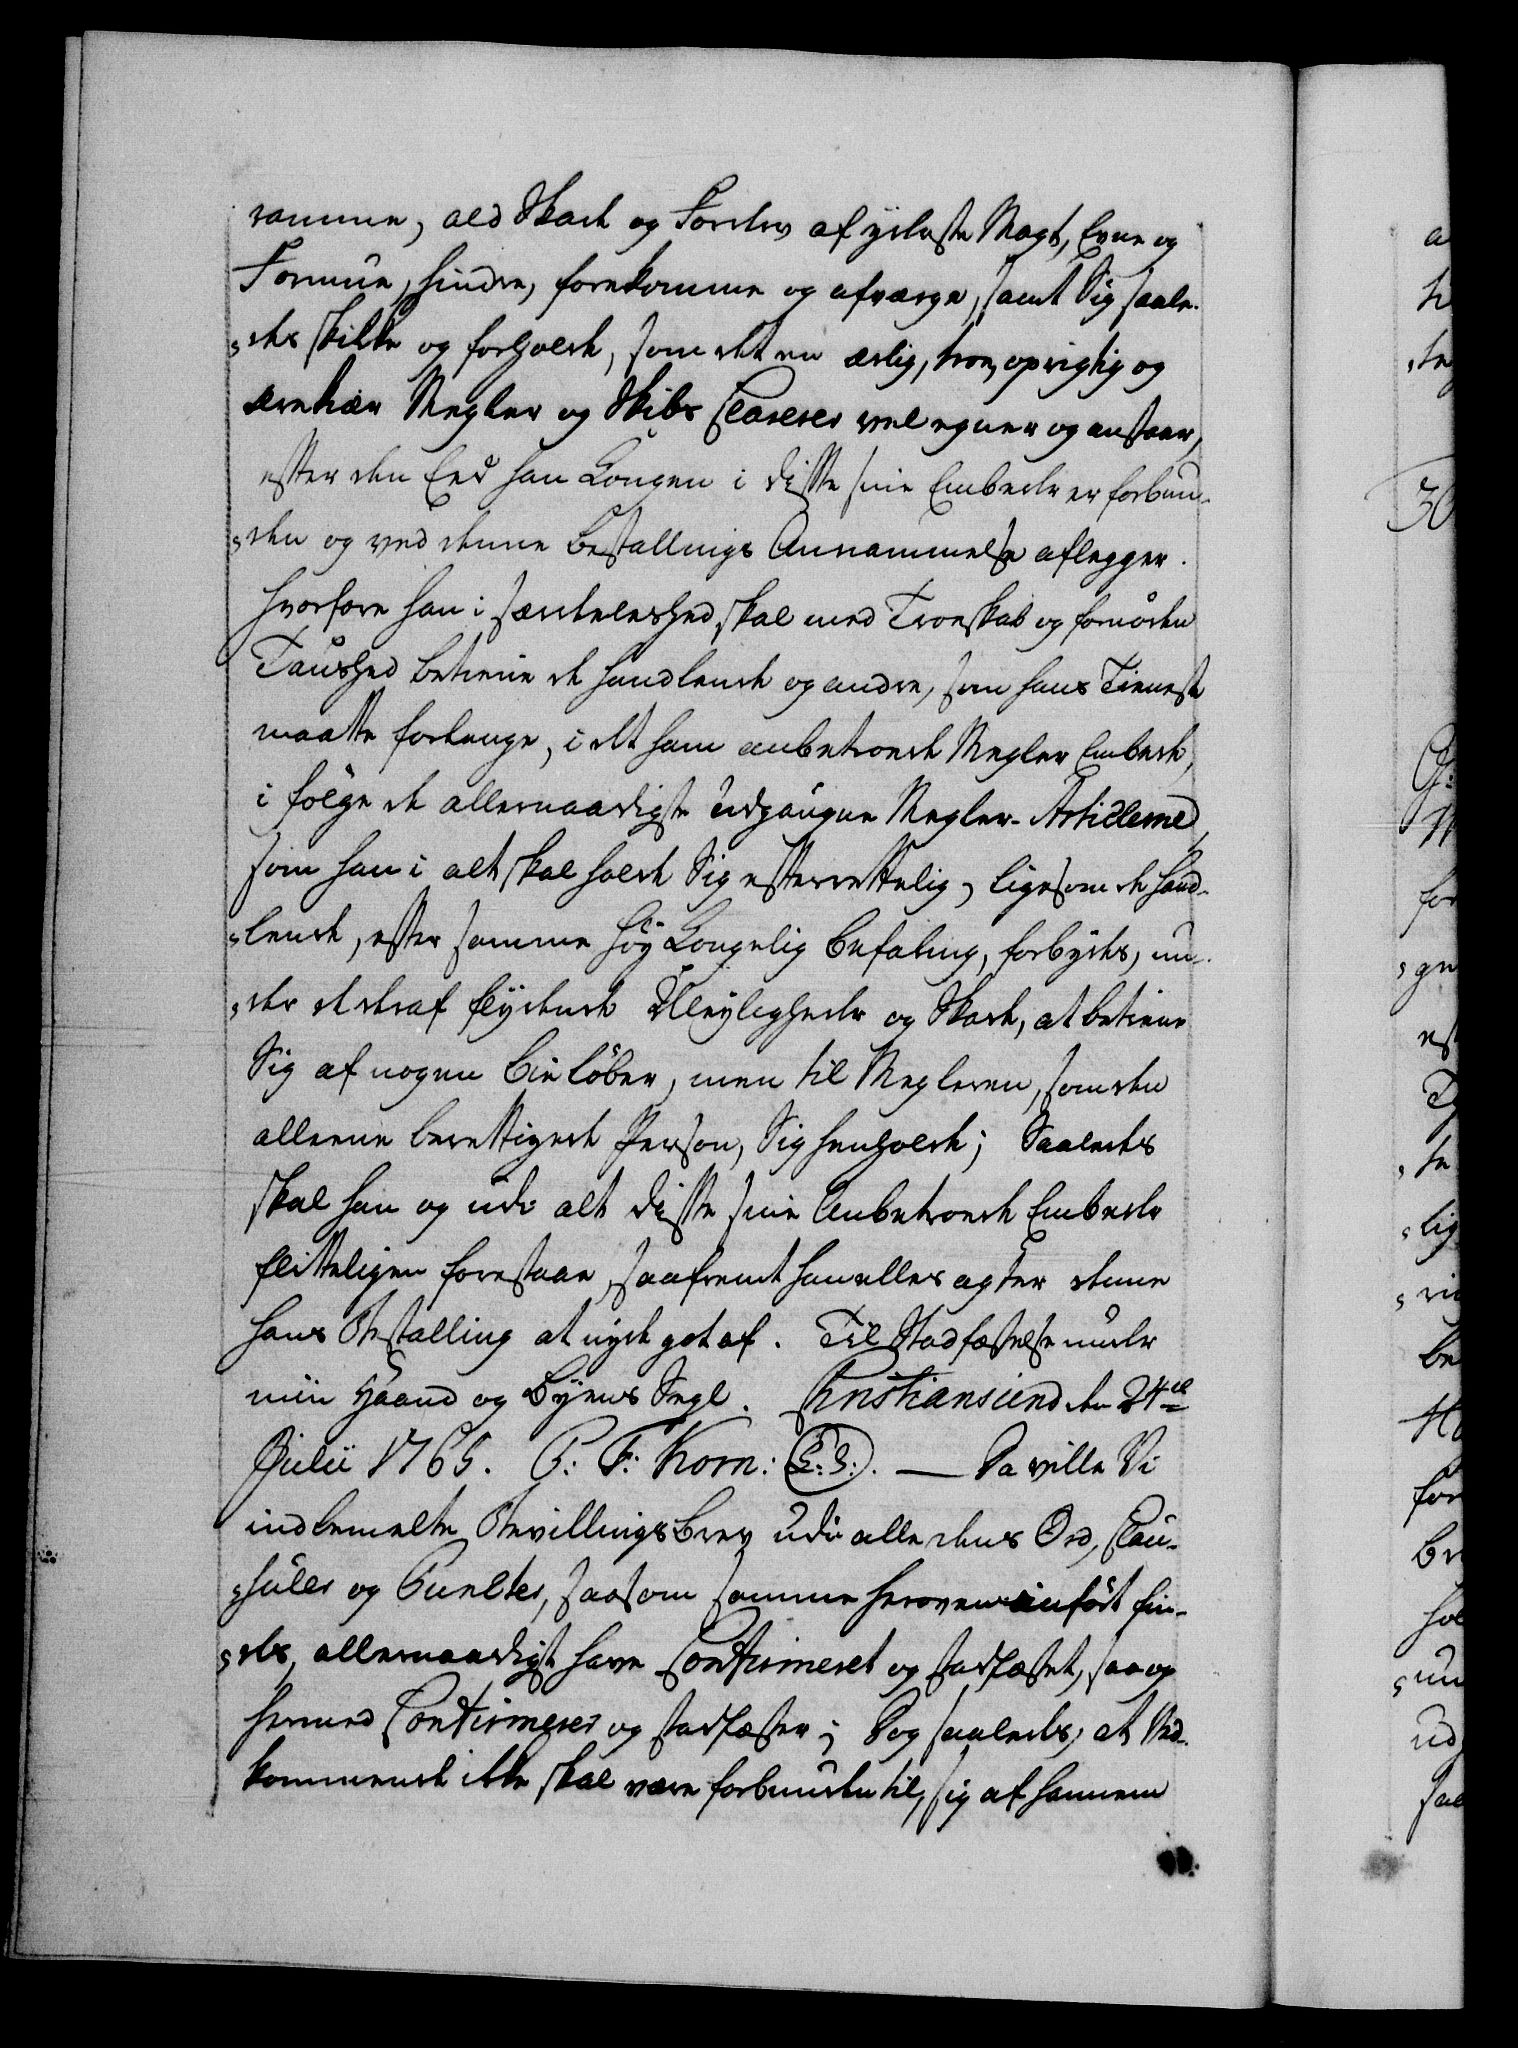 ramme, ald Skade og Forderv af yderste Magt, Evne og
Formue, hindre, forekomme og afværge, samt Sig saale-
des skikke og forholde, som det en ærlig, troe, oprigtig og
ærekiær Megler og Skibs Clarerer vel egner og anstaar,
efter den Eed han Kongen i disse sine Embeder er forbun-
den og ved denne Bestallings Annammelse aflegger.
Hvorfore han i særdeleshed skal med Troeskab og fornöden
Taushed betiene de Handlende og andre, som hans Tieneste
maatte forlange, i det ham anbetroede Megler Embede,
i fölge de allernaadigste udgangne Megler-Articlerne,
som han i alt skal holde Sig efterrettelig, ligesom de Hand-
lende, efter samme Höy Kongelig Befaling, forbydes, un-
der de deraf flydende Uleyligheder og Skade, at betiene
Sig af nogen Bielöber, men til Megleren, som den
alleene berettigede Person, Sig henholde; Saaledes
skal han og udi alt disse sine Anbetroede Embeder
flitteligen forestaae, saafremt han elles agter denne
hans Bestalling at nyde got af. Til Stadfæstelse under
min Haand og Byens Segl. Christiansund den 24de
Julii 1765. P: F: Korn: (L:S:). — Da ville Vi
indbemelte Bevillings Brev udi alle dens Ord, Clau-
suler og Puncter, saasom samme herover indfört fin-
des, allernaadigst have Confirmeret og stadfæstet, saa og
hermed Confirmerer og stadfæster; Dog saaledes, at Ved-
kommende ikke skal være forbunden til, sig af hannem